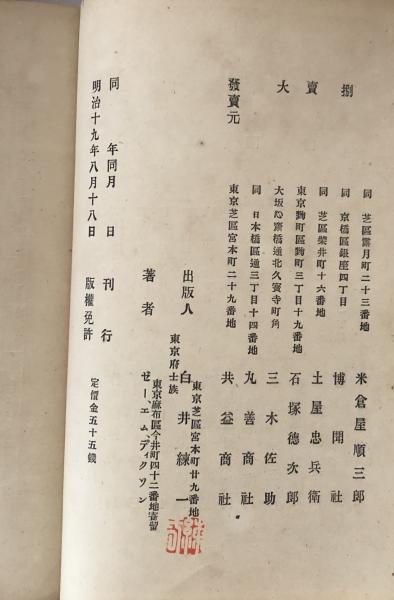 明治十九年八月十八日 版權免許 定價金五十五錢
同 年同月 日 刊行
著者 ゼー、エム、ディクソン
東京麻布區今井町四十二番地寄留
出版人 東京府士族 白井練一
東京芝區宮本町廿九番地
發賣元 東京芝區宮本町二十九番地 共益商社
同 日本橋區通三丁目十四番地 丸善商社
大賣捌
大坂心齋橋通北久寶寺町角 三木佐助
東京麴町區麴町三丁目十九番地 石塚德次郎
同 芝區柴井町十六番地 土屋忠兵衛
同 京橋區銀座四丁目 博聞社
同 芝區露月町二十三番地 米倉屋順三郎